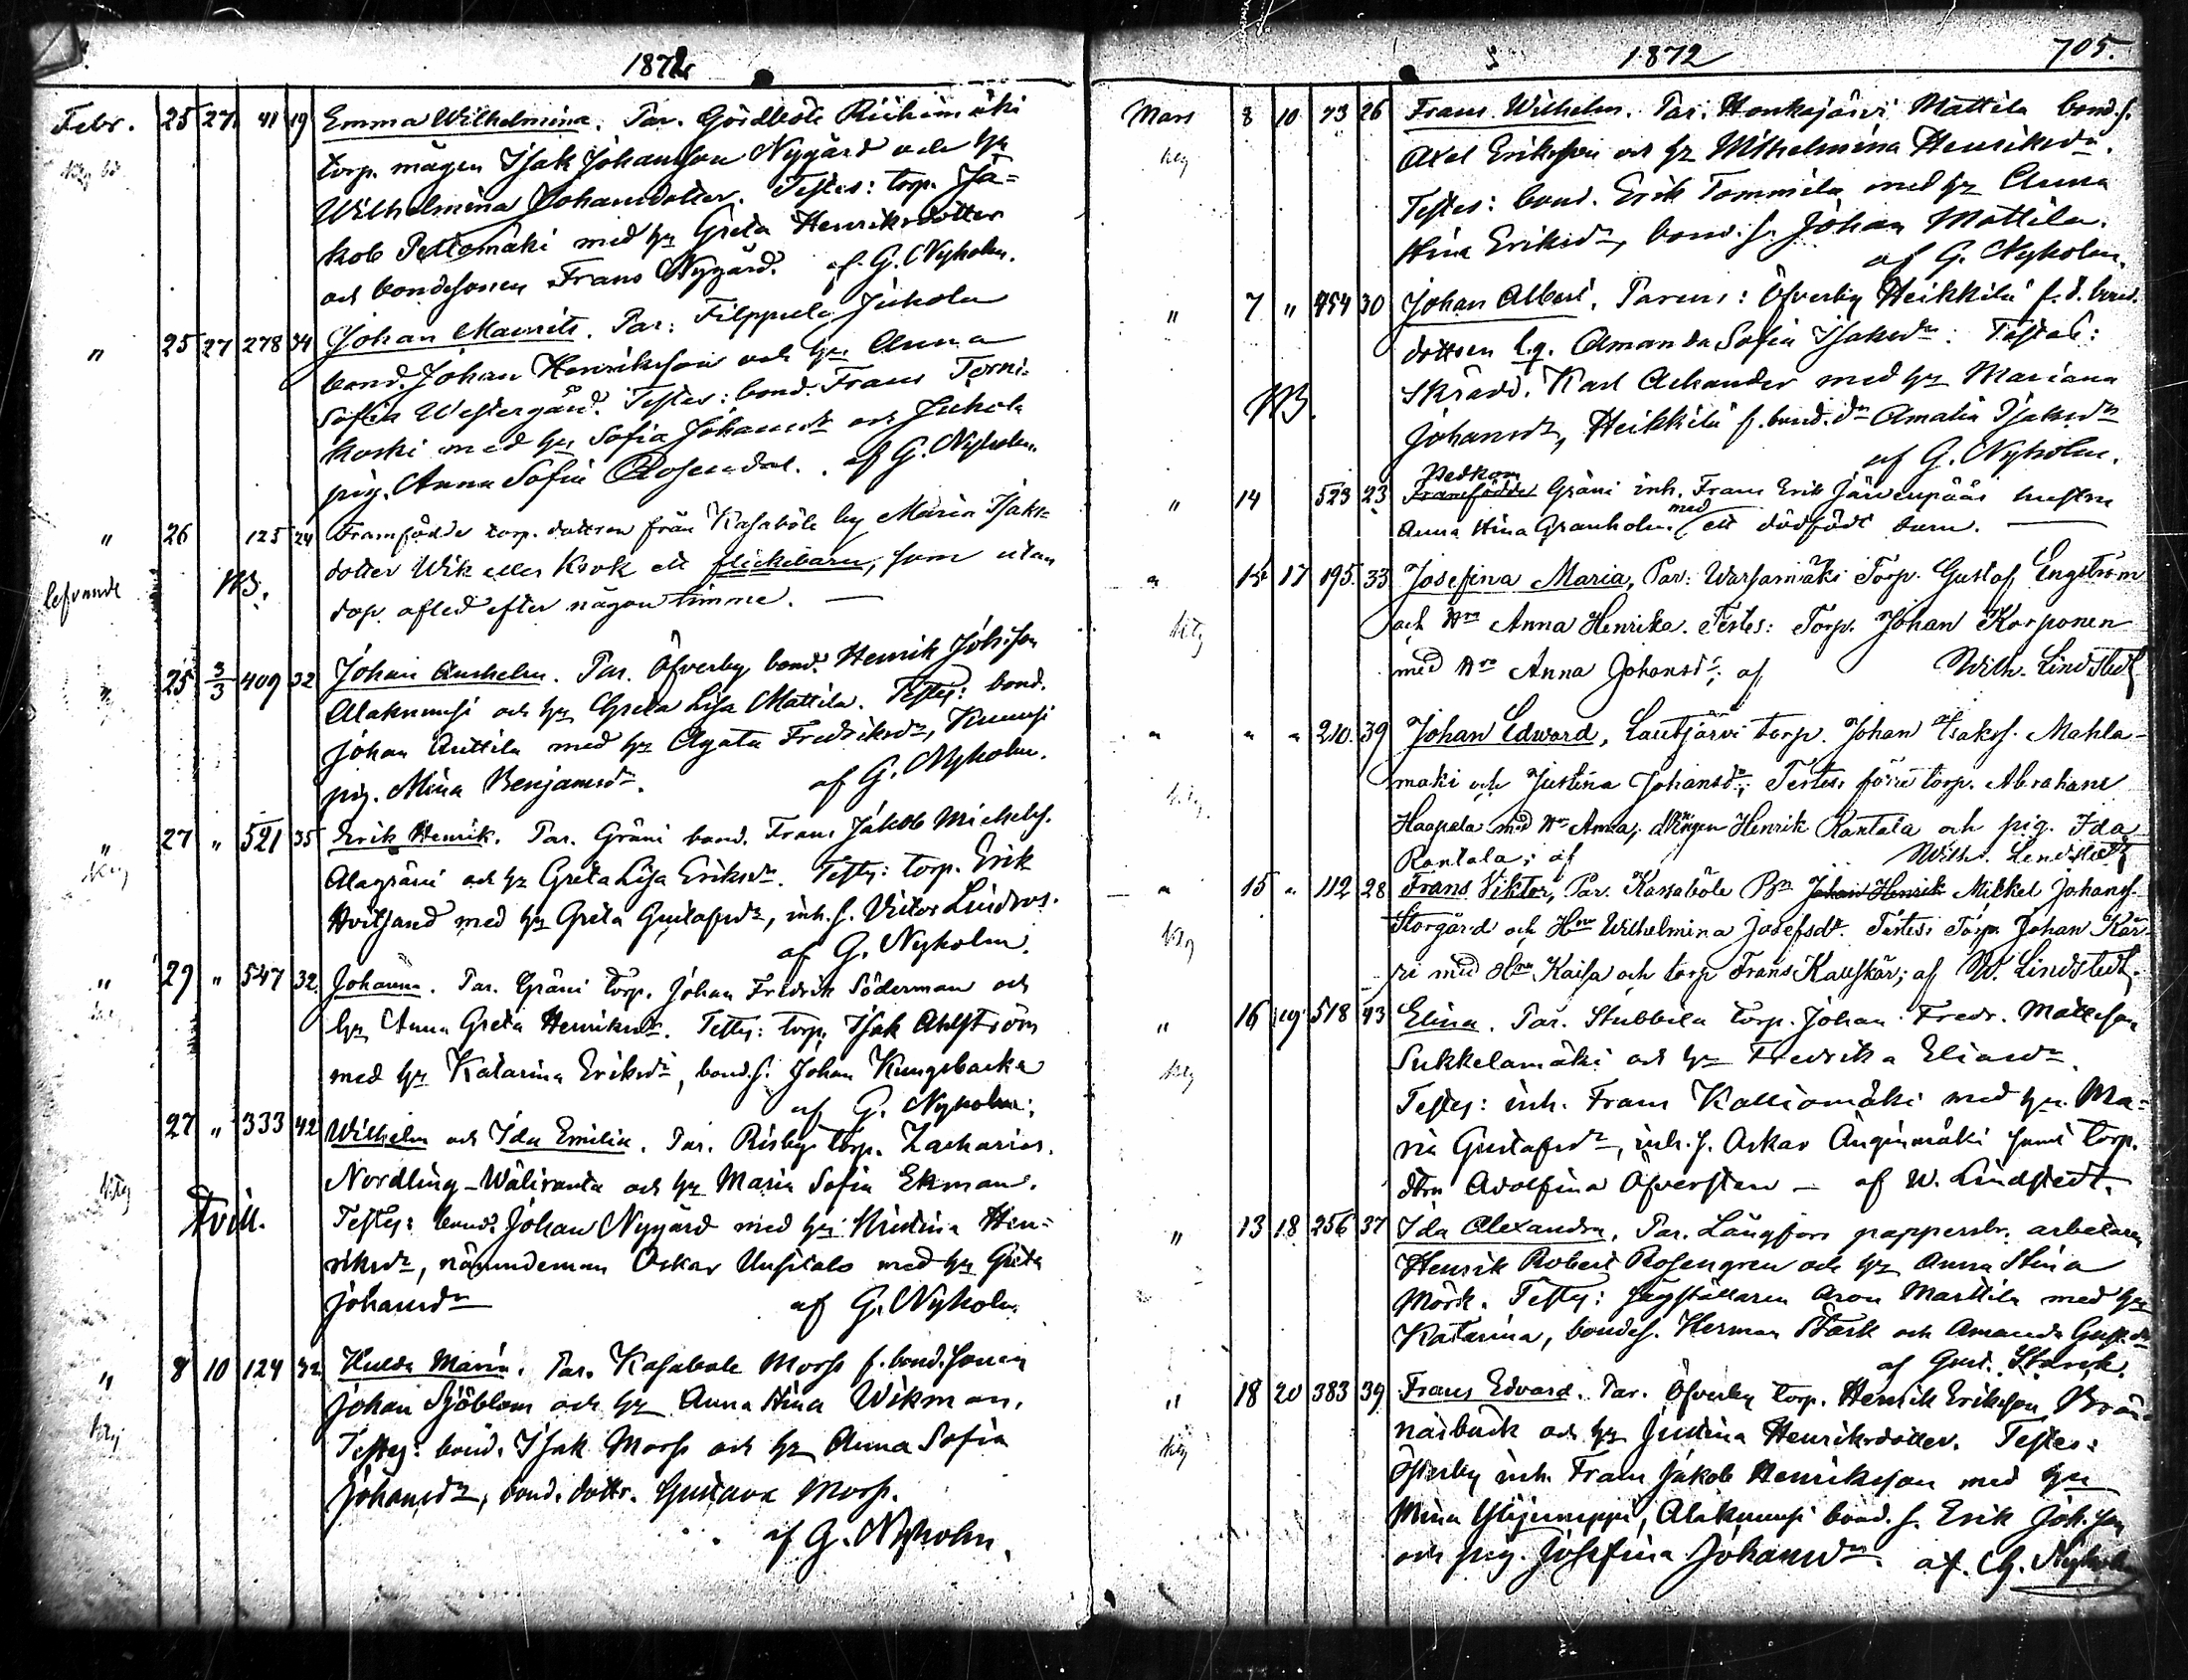 1872
Febr. 25 27 41 19 Emma Wilhelmina. Par. Gördböle Riihimäki
torp. mågen Isak Johansson Nygård och hu
Wilhelmina Johansdotter. Testes: torp. Ja-
kob Peltomäki med hu Greta Henriksdotter
och bondesonen Frans Nygård. af G. Nyholm.
" 25 27 278 34 Johan Mauritz. Par: Filppula Juhola
bond. Johan Henriksson och hu Anna
Sofia Westergård. Testes: bond. Frans Torni-
koski med hu Sofia Johansdr och Juhola
pig. Anna Sofia Rosendal. af G. Nyholm.
" 26 125 24 Framfödde torp. dottren från Kasaböle by Maria Isaks-
lefvande NB. dotter Wik eller Krok ett flickebarn, som utan
dop afled efter någon timme. —
" 25 3/3 409 32 Johan Anshelm. Par. Öfverby bond. Henrik Joh:son
Alaknuusi och hu Greta Lisa Mattila. Testes: bond.
Johan Anttila med hu Agata Fredriksdr, Knuusi
pig. Mina Benjamsdr. af G. Nyholm.
" 27 " 521 35 Erik Henrik. Par. Gräni bond. Frans Jakob Michelss.
Alagräni och hu Greta Lisa Eriksdr. Testes: torp. Erik
Hvitsand med hu Greta Gustafsdr, inh. s. Victor Lindros.
af G. Nyholm.
" 29 " 547 32. Johanna. Par. Gräni torp. Johan Fredrik Söderman och
hu Anna Greta Henriksdr. Testes: torp. Isak Ahlström
med hu Katarina Eriksdr, bond.s. Johan Kungsbacka
af G. Nyholm.
27 " 333 42 Wilhelm och Ida Emilia. Par. Risby torp. Zacharias
Nordling-Wäliranta och hu Maria Sofia Ekman.
Tvill. Testes: bond. Johan Nygård med hu Kristina Hen-
riksdr, nämndeman Oskar Uusitalo med hu Greta
Johansdr af G. Nyholm.
" 8 10 124 32 Hulda Maria. Par. Kasaböle Morss f. bond.sonen
Johan Sjöblom och hu Anna Stina Wikman.
Testes: bond. Isak Morss och hu Anna Sofia
Johansdr, bond. dottr. Gustava Morss.
af G. Nyholm.
1872 705.
Mars 8 10 73 26 Frans Wilhelm. Par. Honkajärvi Mattila bond.s.
Axel Eriksson och hu Wilhelmina Henriksdr.
Testes: bond. Erik Tommila med hu Anna
Stina Eriksdr, bond.s. Johan Mattila.
af G. Nyholm.
" 7 " 454 30 Johan Albert. Parens: Öfverby Heikkilä f.d. bond.
dottren lg. Amanda Sofia Isaksdr. Testes:
NB. Skrädd. Karl Achander med hu Mariana
Johansdr, Heikkilä f. bond. dr Amalia Isaksdr
af G. Nyholm.
" 14 523 23 Nedkom
Framfödde Gräni inh. Frans Erik Järvenpääs hustru
Anna Stina Granholm med ett dödfödt barn. —
" 15 17 195. 33 Josefina Maria, Par: Warsamäki Torp. Gustaf Engström
och Hru Anna Henrika. Testes: Torp. Johan Korponen
med Hru Anna Johansdr; af Wilh. Lindstedt
" " " 210. 39 Johan Edward, Lautjärvi torp. Johan Isakss. Mahla-
mäki och Justina Johansdr; Testes: förre torp. Abraham
Haapala med Hru Anna; drängen Henrik Rantala och pig. Ida
Rantala; af Wilh. Lindstedt
" 15 " 112 28 Frans Viktor, Par. Kasaböle Bn Johan Henrik Mikkel Johanss.
Storgård och Hru Wilhelmina Josefsdr. Testes: Torp. Johan Kär-
ri med Hru Kaisa och torp Frans Kauskär; af W. Lindstedt.
" 16 19 518 43 Elina. Par. Stubbila torp. Johan Fredr. Mattsson
Sukkelamäki och hu Fredrika Eliasdr.
Testes: inh. Frans Kalliomäki med hu Ma-
ria Gustafsdr, inh. s. Oskar Äuginmäki samt torp.
dtrn Adolfina Öfversten — af W. Lindstedt.
" 13 18 256 37 Ida Alexandra, Par. Långfors pappersbr. arbetaren
Henrik Robert Rosengren och hu Anna Stina
Mörk. Testes: sågställaren Aron Marttila med hu
Katarina, bondes. Herman Stark och Amanda Gust.dr
af Gust. Starck.
" 18 20 383 39 Frans Edvard. Par. Öfverby torp. Henrik Eriksson Brän-
näsbäck och hu Justina Henriksdotter. Testes:
Österby inh. Frans Jakob Henriksson med hu
Mina Ylijuneppi, Alaknuusi bond. s. Erik Joh:son
och pig. Josefina Johansdr. af G. Nyholm